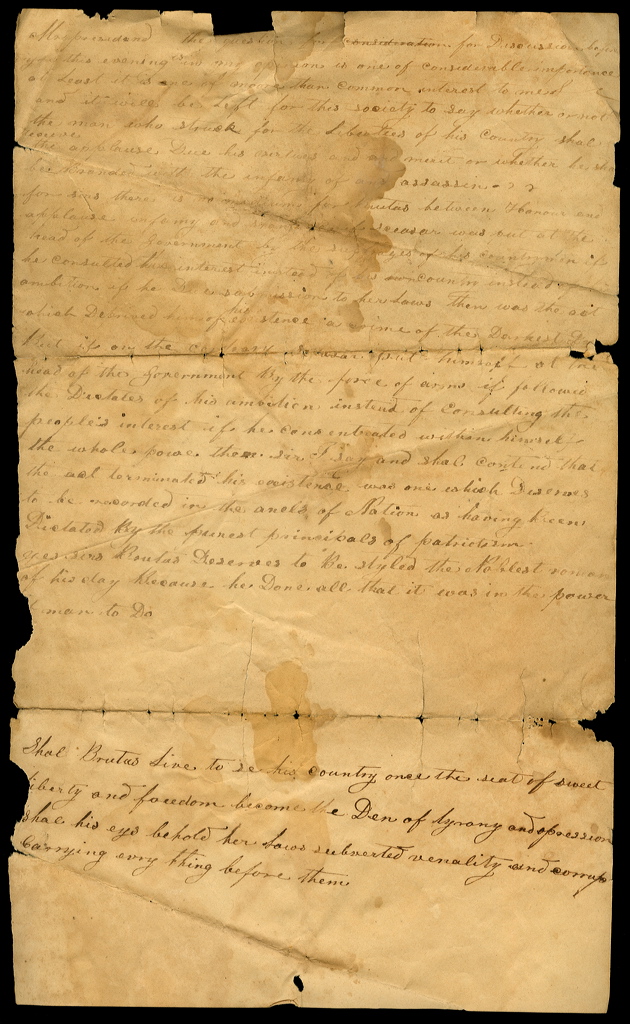 Mr president the question for consideration for Discussion before
you this evening in my opinion is one of considerable importance
at least it is one of more than common interest to mese
and it will be left for this society to say whether or not
the man who struck for the liberties of his country shal
receive
the applause Due his virtues and and merit or whether he shal
be Branded with the infamy of an assassin
for sirs there is no medium for Brutus between Honour and
applause infamy and if Ceasar was put at the
head of the government by the suffrages of his countrymen if
he consulted her interest instead of his own instead of
ambition if he Due submission to her laws then was the act
his
which Deprived him of existence a crime of the Darkest Die
But if on the contrary Ceasar put himself at the
head of the Government By the force of arms if followed
the Dictates of his amotion instead of Consulting the
people's interest if he consentraded within himself
the whole powe then sir I say and shal contend that
the act terminated his existence was one which Deserves
to be recorded in the anels of Nations as having Been
Dictated By the purest principals of patriotism
yes sirs Brutus Deserves to Be styled the Noblest roman
of his day Because he Done all that it was in the power
of man to Do
Shal Brutus Live to se his country once the seat of sweet
liberty and freedom become the Den of tyrany and opression
shal his eys behold her laws subverted venality and corrup
Carrying evry thing before them